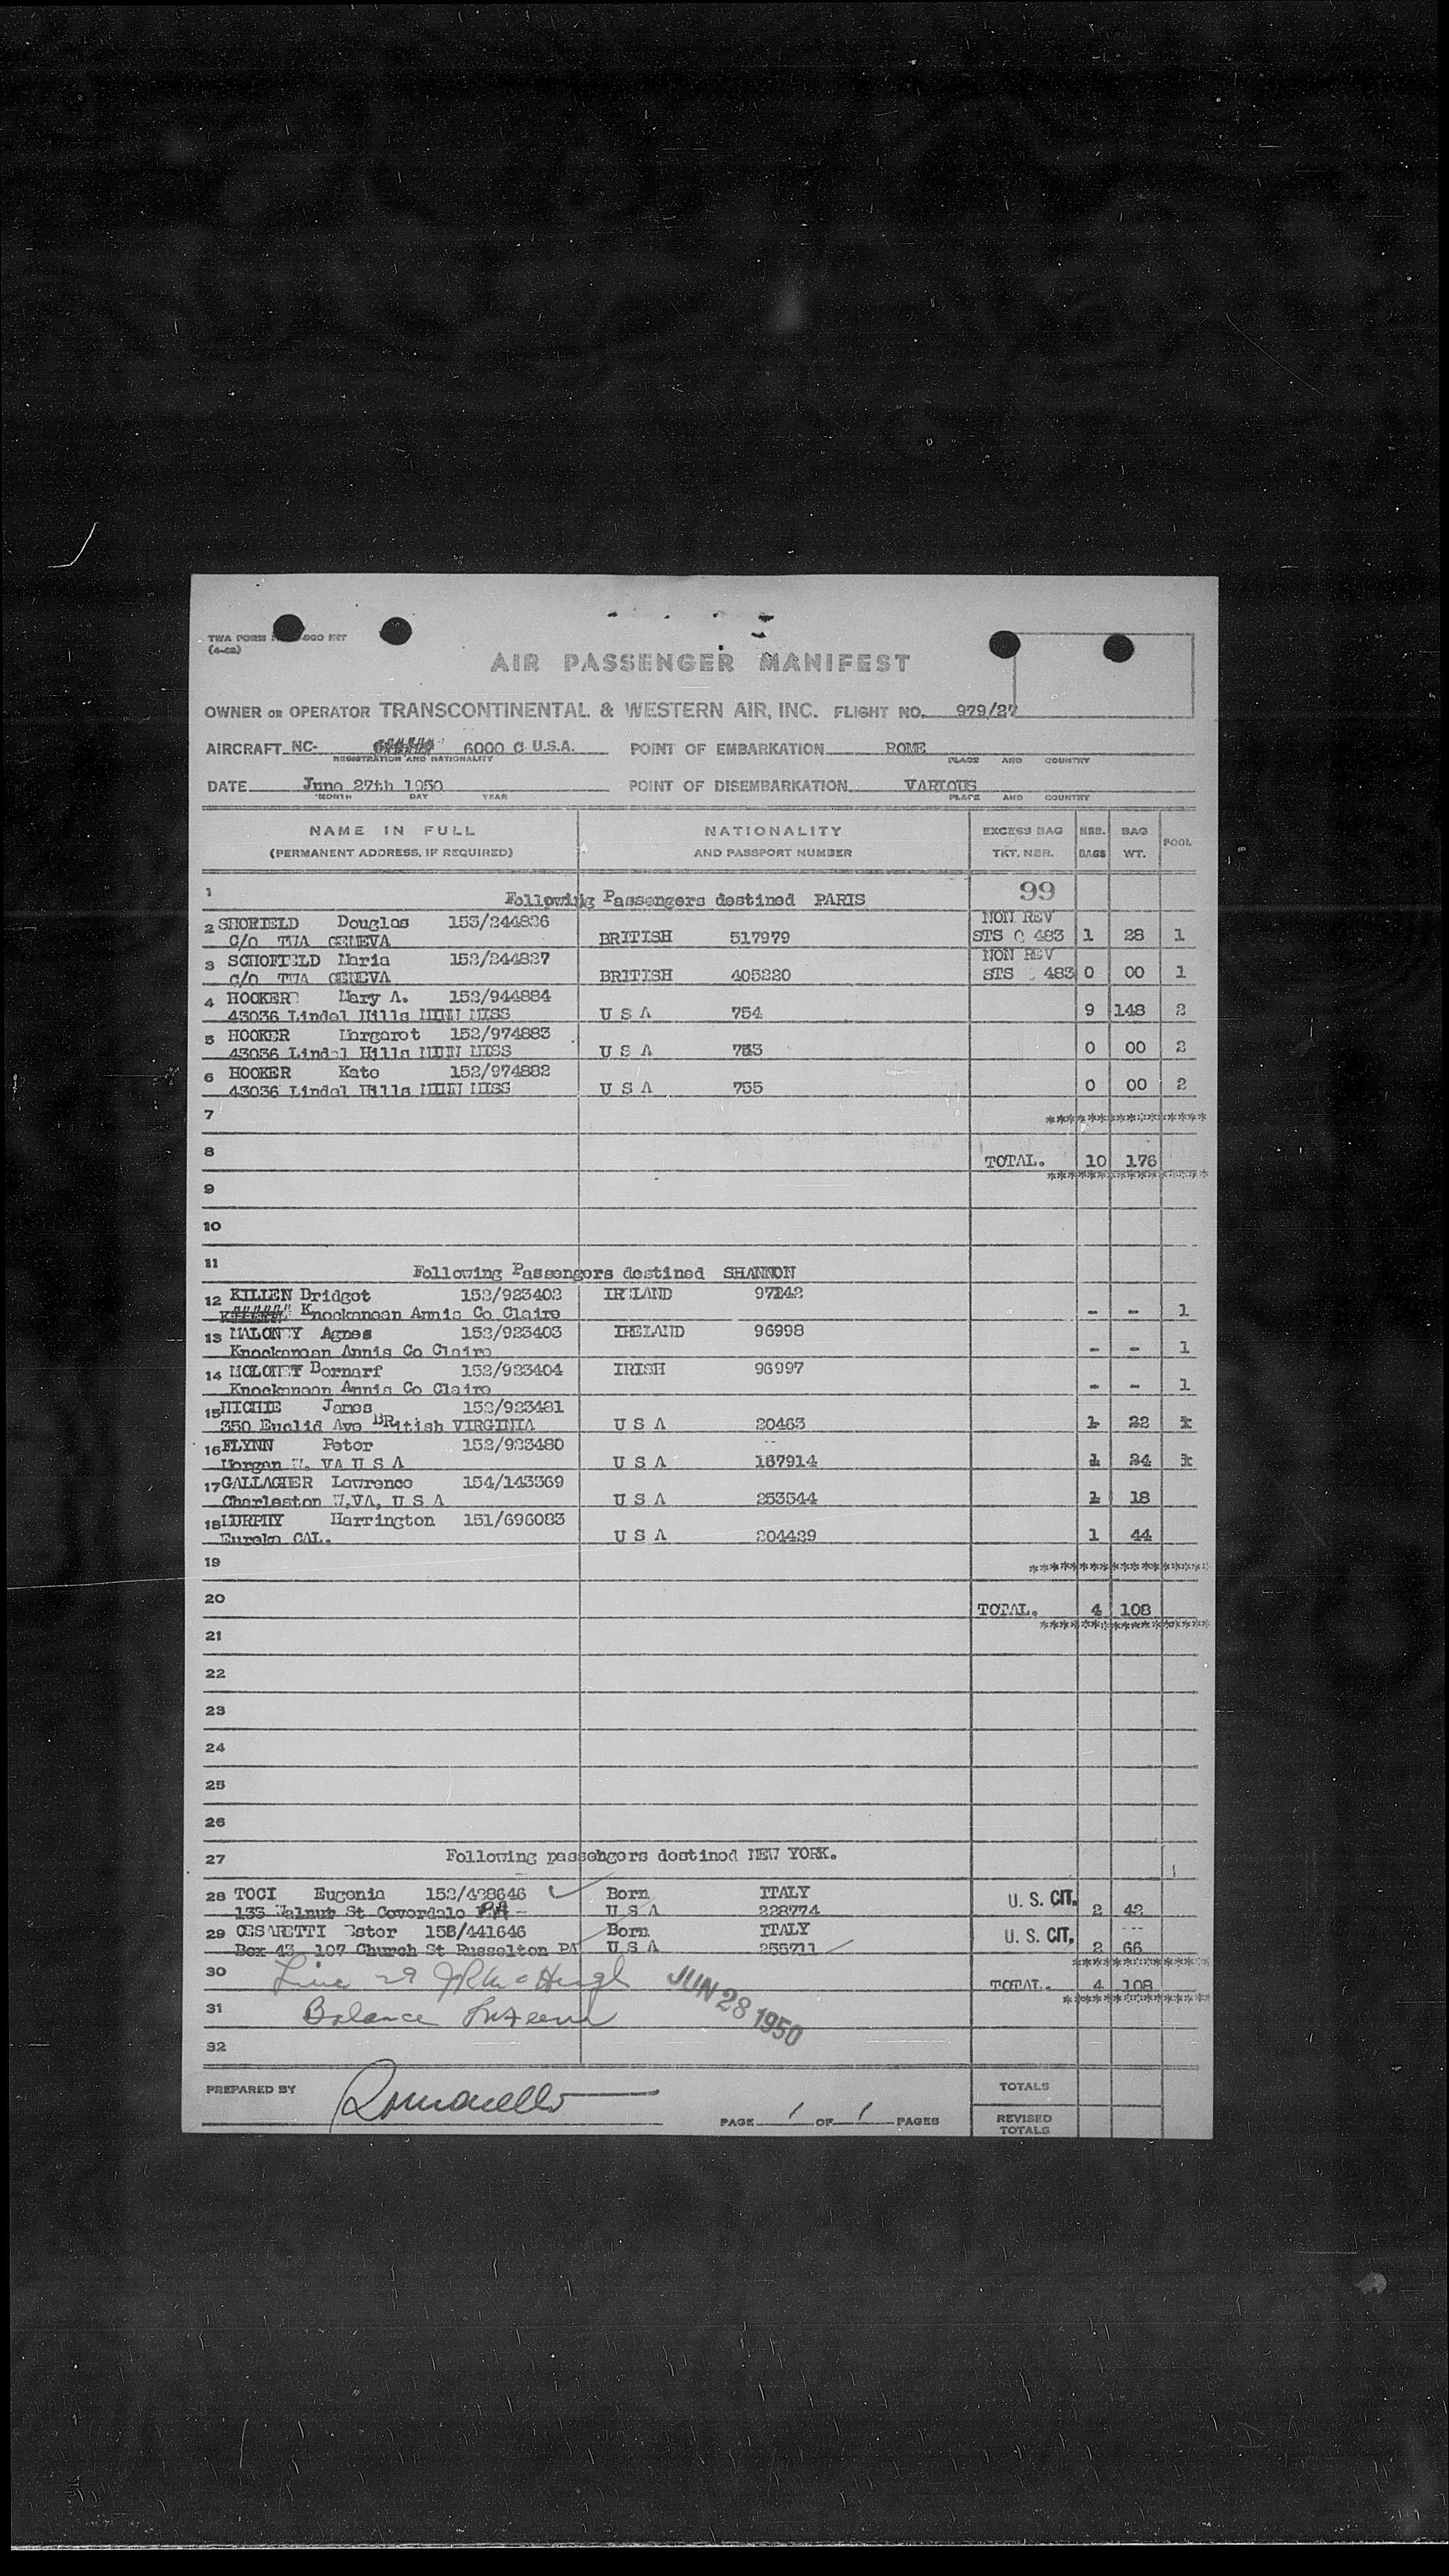 TWA FORM 800 INT
(4-48)
AIR PASSENGER MANIFEST
OWNER OR OPERATOR TRANSCONTINENTAL & WESTERN AIR, INC. FLIGHT NO. 979/27
AIRCRAFT NC- 6000 C U.S.A. POINT OF EMBARKATION ROME
REGISTRATION AND NATIONALITY PLACE AND COUNTRY
DATE June 27th 1950 POINT OF DISEMBARKATION VARIOUS
MONTH DAY YEAR PLACE AND COUNTRY
NAME IN FULL NATIONALITY EXCESS BAG NBR. BAG POOL
(PERMANENT ADDRESS, IF REQUIRED) AND PASSPORT NUMBER TKT. NBR. BAGS WT.
1 Following Passengers destined PARIS 99
2 SHOFIELD Douglas 153/244826 NON REV
C/O TWA GENEVA BRITISH 517979 STS C 483 1 28 1
3 SCHOFIELD Maria 152/244827 NON REV
C/O TWA GENEVA BRITISH 405220 STS 483 0 00 1
4 HOOKER Mary A. 152/944884
43036 Lindel Hills MINN MISS U S A 754 9 148 2
5 HOOKER Margaret 152/974883
43036 Lindel Hills MINN MISS U S A 753 0 00 2
6 HOOKER Kate 152/974882
43036 Lindel Hills MINN MISS U S A 755 0 00 2
7 ****************
8 TOTAL. 10 176
****************
9
10
11 Following Passengers destined SHANNON
12 KILLEN Bridget 152/923402 IRELAND 97242
Knockanean Annis Co Claire - - 1
13 MALONEY Agnes 152/923403 IRELAND 96998
Knockanean Annis Co Claire - - 1
14 MOLONEY Bernarf 152/923404 IRISH 96997
Knockanean Annis Co Claire - - 1
15 HICHIE James 152/923481
350 Euclid Ave BRitish VIRGINIA U S A 20463 1 22 1
16 FLYNN Peter 152/923480
Morgan W. VA U S A U S A 167914 1 24 1
17 GALLAGHER Lawrence 154/143369
Charleston W.VA, U S A U S A 253544 1 18
18 MURPHY Harrington 151/696083
Eureka CAL. U S A 204429 1 44
19 ******************
20 TOTAL. 4 108
*****************
21
22
23
24
25
26
27 Following passengers destined NEW YORK.
28 TOCI Eugenia 152/428646 Born ITALY U. S. CIT.
133 Walnut St Coverdale PA U S A 228774 2 42
29 CESARETTI Ester 152/441646 Born ITALY U. S. CIT.
Box 43 107 Church St Russelton PA U S A 255711 2 66
**************
30 Line 29 JR McHugh TOTAL. 4 108
JUN 28 1950 ***************
31 Balance
32
PREPARED BY Romanello TOTALS
PAGE 1 OF 1 PAGES REVISED
TOTALS